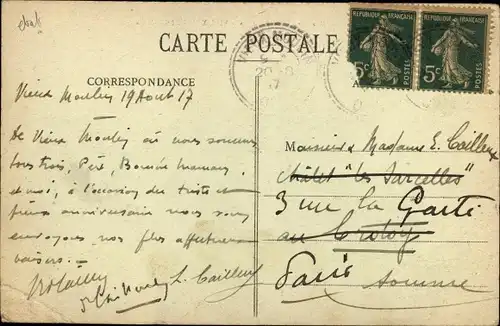 CARTE POSTALE
REPUBLIQUE FRANÇAISE
5c POSTES
REPUBLIQUE FRANÇAISE
5c POSTES
CORRESPONDANCE
Vieux Moulin 19 Août 17
De Vieux Moulin où nous sommes
tous trois, Père, Bonne maman,
et moi, à l'occasion du triste et
anniversaire nous vous
envoyons nos plus affectueux
baisers.
L. Cailleux
Monsieur & Madame E. Cailleux
Châlet "les Sarcelles"
3 rue la
au Crotoy
Paris Somme